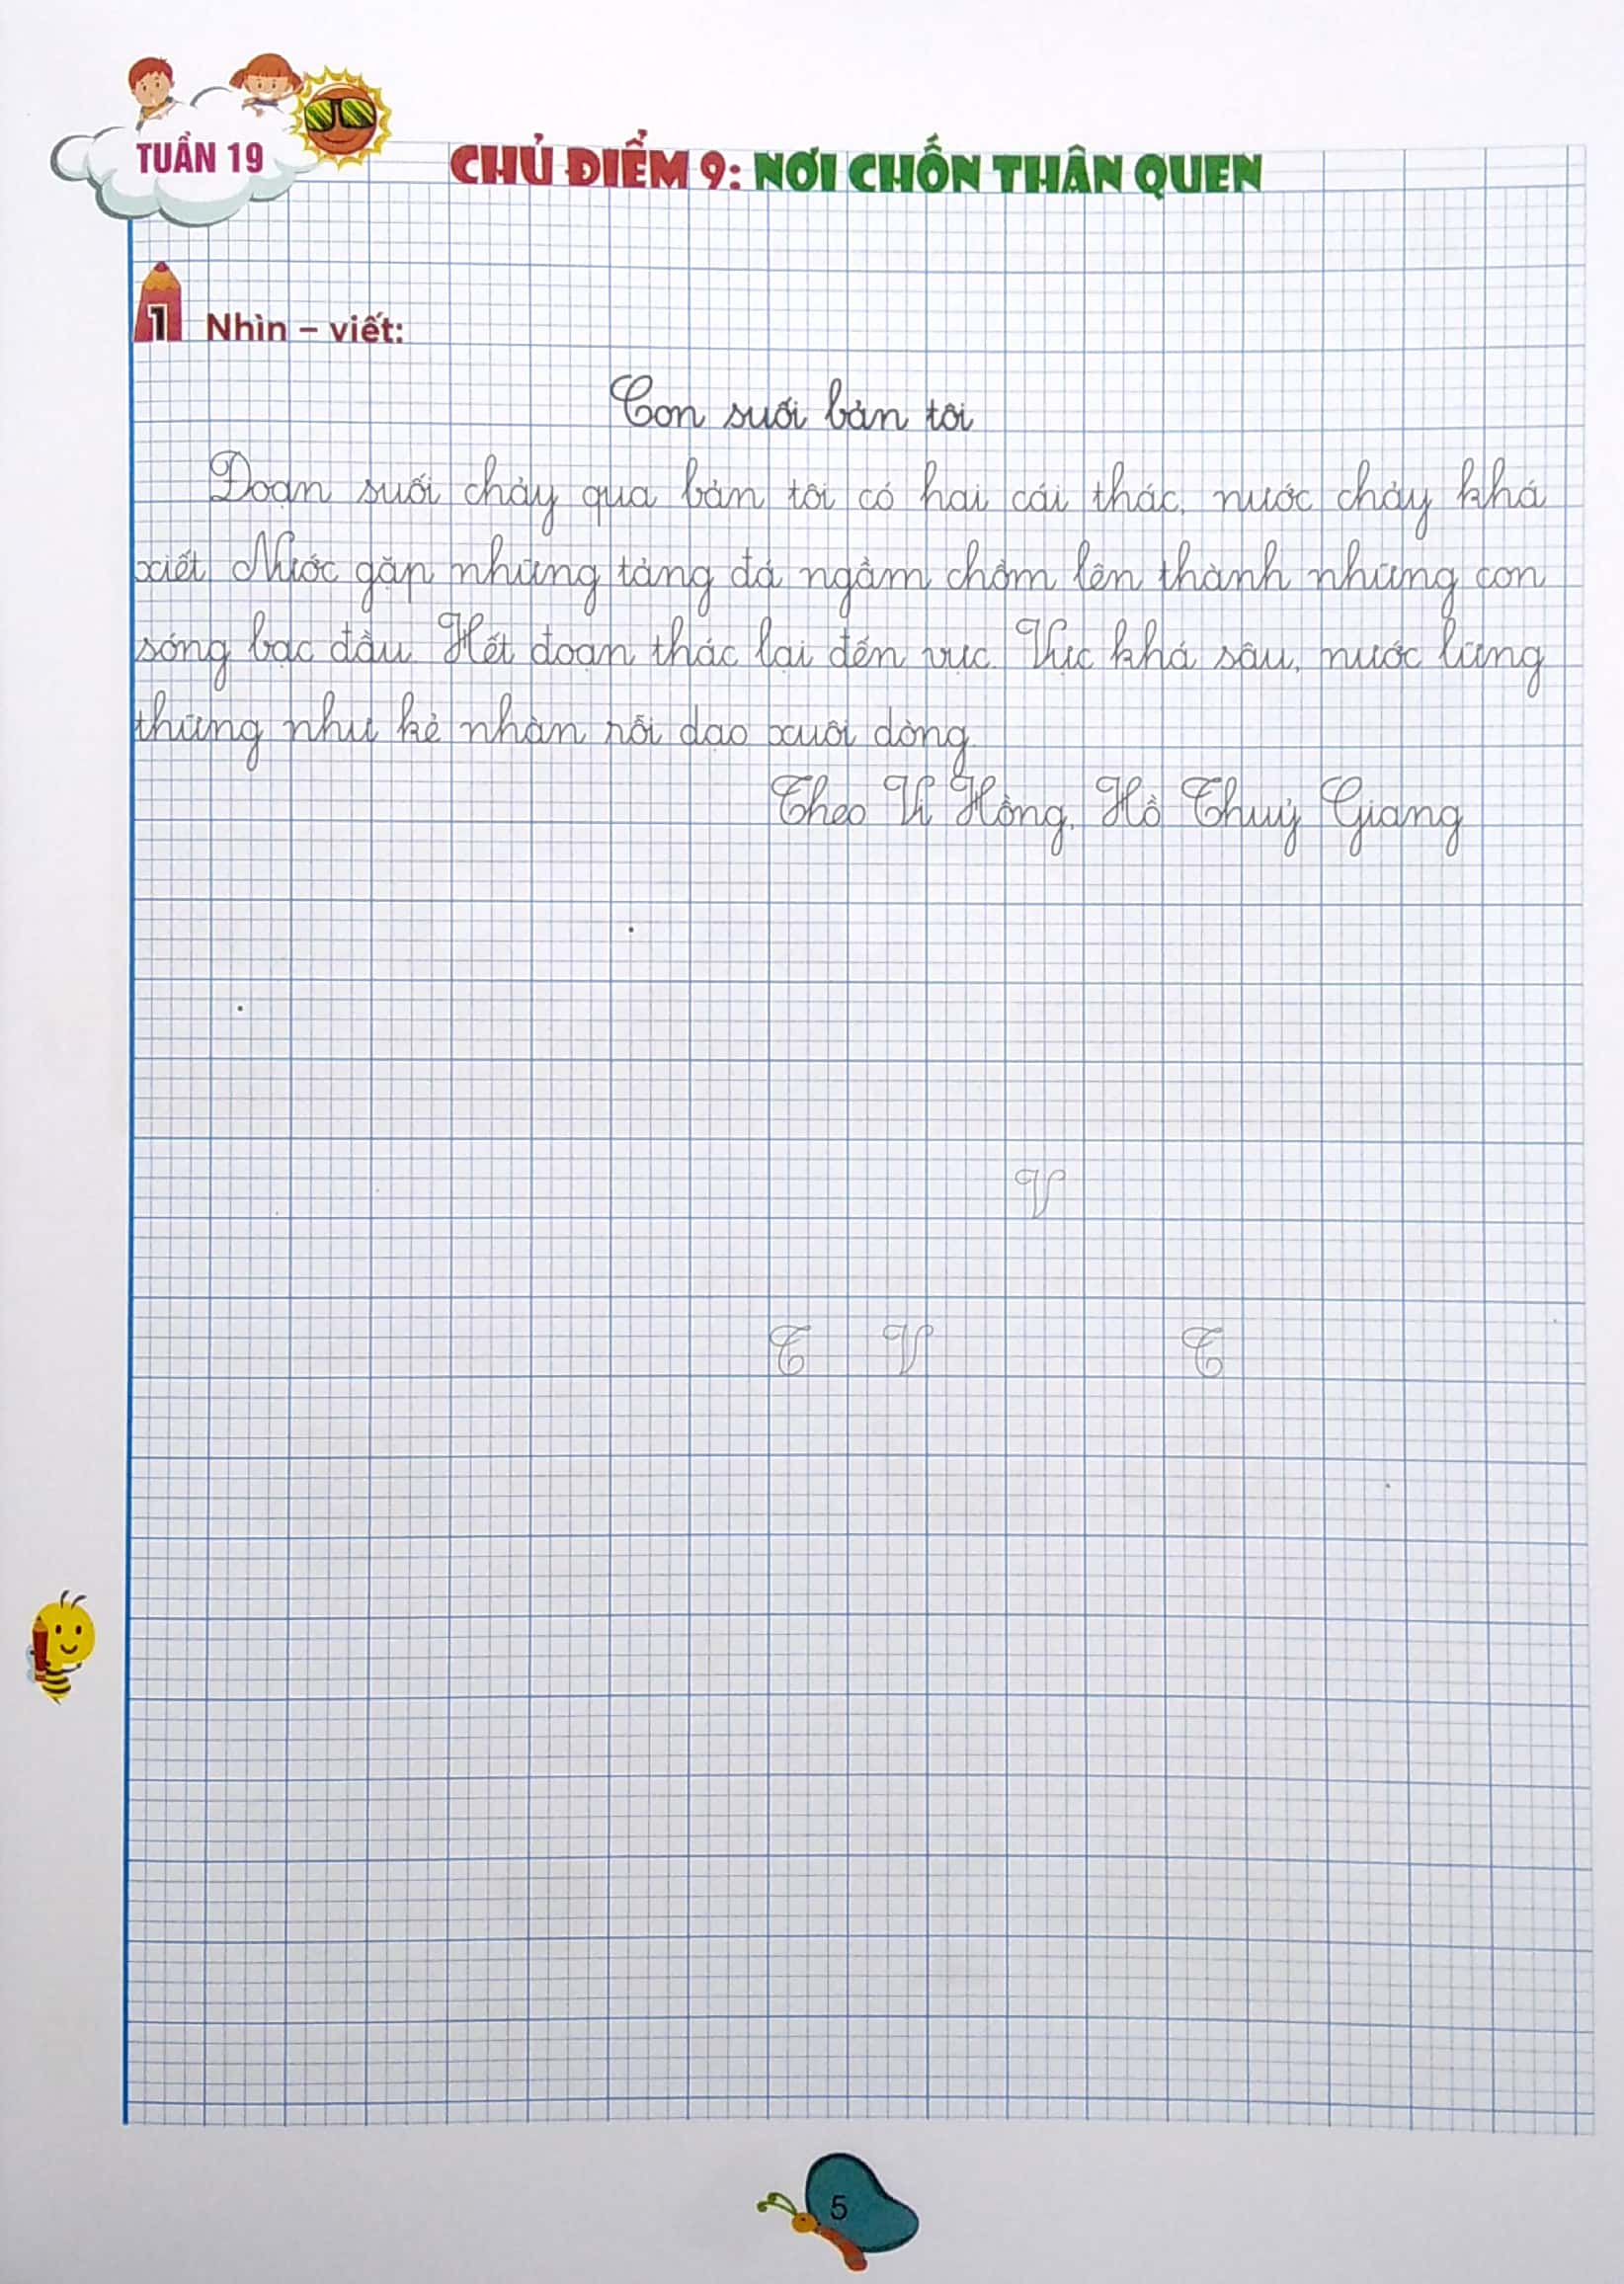 TUẦN 19
CHỦ ĐIỂM 9: NƠI CHỐN THÂN QUEN
1 Nhìn – viết:
Con suối bản tôi
Đoạn suối chảy qua bản tôi có hai cái thác, nước chảy khá
xiết. Nước gặp những tảng đá ngầm chồm lên thành những con
sóng bạc đầu. Hết đoạn thác lại đến vực. Vực khá sâu, nước lững
thững như kẻ nhàn rỗi dạo xuôi dòng.
Theo Vi Hồng, Hồ Thuỷ Giang
V
T V T
5